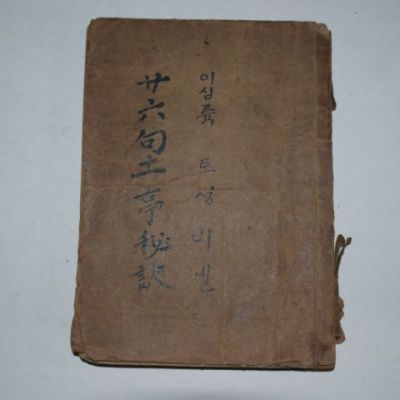 이십륙 토상비
廿六句土亭秘訣